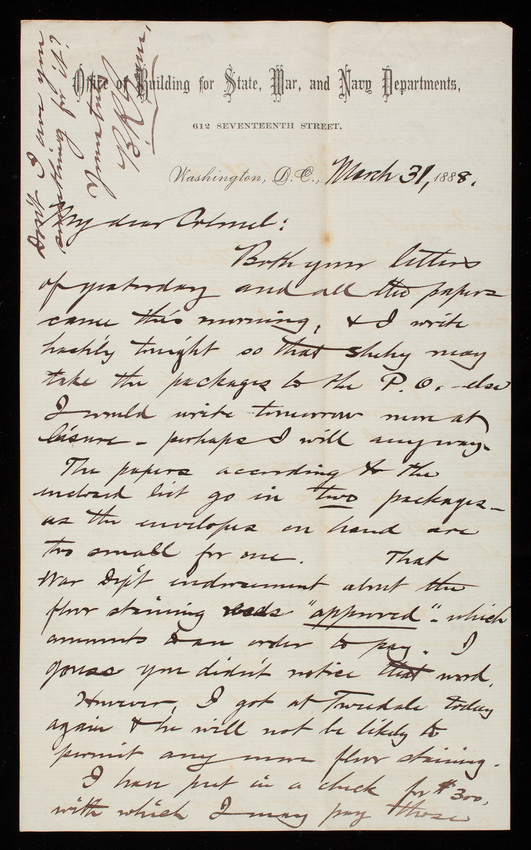 Office of Building for State, War, and Navy Departments,
612 SEVENTEENTH STREET.
Washington, D. C., March 31, 1888.
My dear Colonel:
Both your letters
of yesterday and all the papers
came this morning, & I write
hastily tonight so that Sheehy may
take the packages to the P.O. - else
I would write tomorrow more at
leisure - perhaps I will anyway.
The papers according to the
inclosed list go in two packages -
as the envelopes on hand are
too small for one. That
War Dep't indorsement about the
floor staining reads "approved" - which
amounts to an order to pay. I
guess you didn't notice that word.
However, I got at Tweedale today
again & he will not be likely to
permit any more floor staining.
I have put in a check for $300,
with which I may pay those